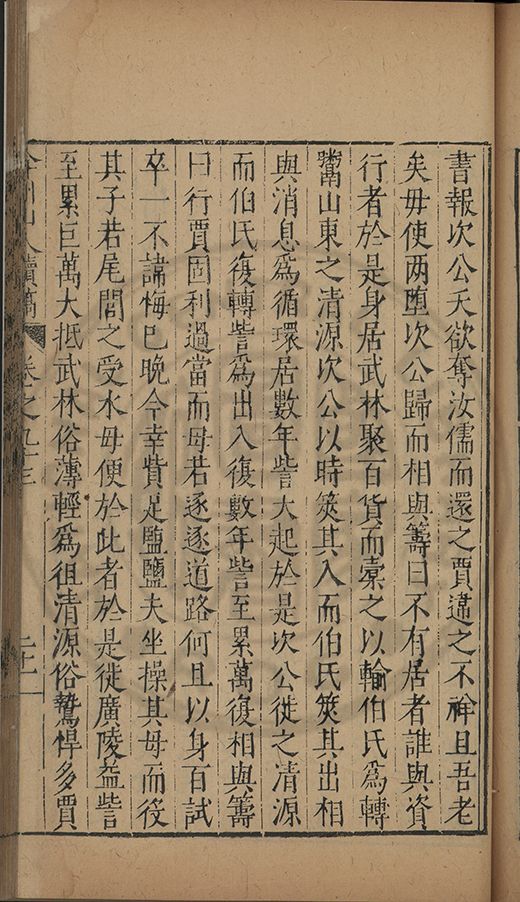 書報次公天欲奪汝儒而還之賈違之不祥且吾老
矣毋使两墮次公歸而相與籌曰不有居者誰與資
行者於是身居武林聚百貨而橐之以輸伯氏爲轉
鬻山東之清源次公以時筴其入而伯氏筴其出相
與消息爲循環居數年訾大起於是次公徙之清源
而伯氏復轉訾爲出入復數年訾至累萬復相與籌
曰行賈固利過當而毋若逐逐道路何且以身百試
卒一不諱悔已晚今幸貲足鹽鹽夫坐操其母而役
其子若尾閭之受水毋便於此者於是徙廣陵益訾
至累巨萬大抵武林俗薄輕爲徂清源俗鷙悍多賈
續稿 卷之九十三